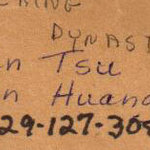 CHING
DYNAST
n Tsu
n Huang
29-127-308